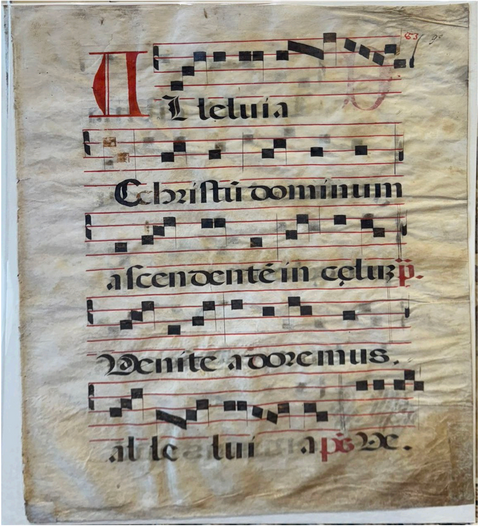 Alleluia
Christū dominum
ascendentē in celuz p̄.
Venite adoremus.
alle lui a ps Ve.